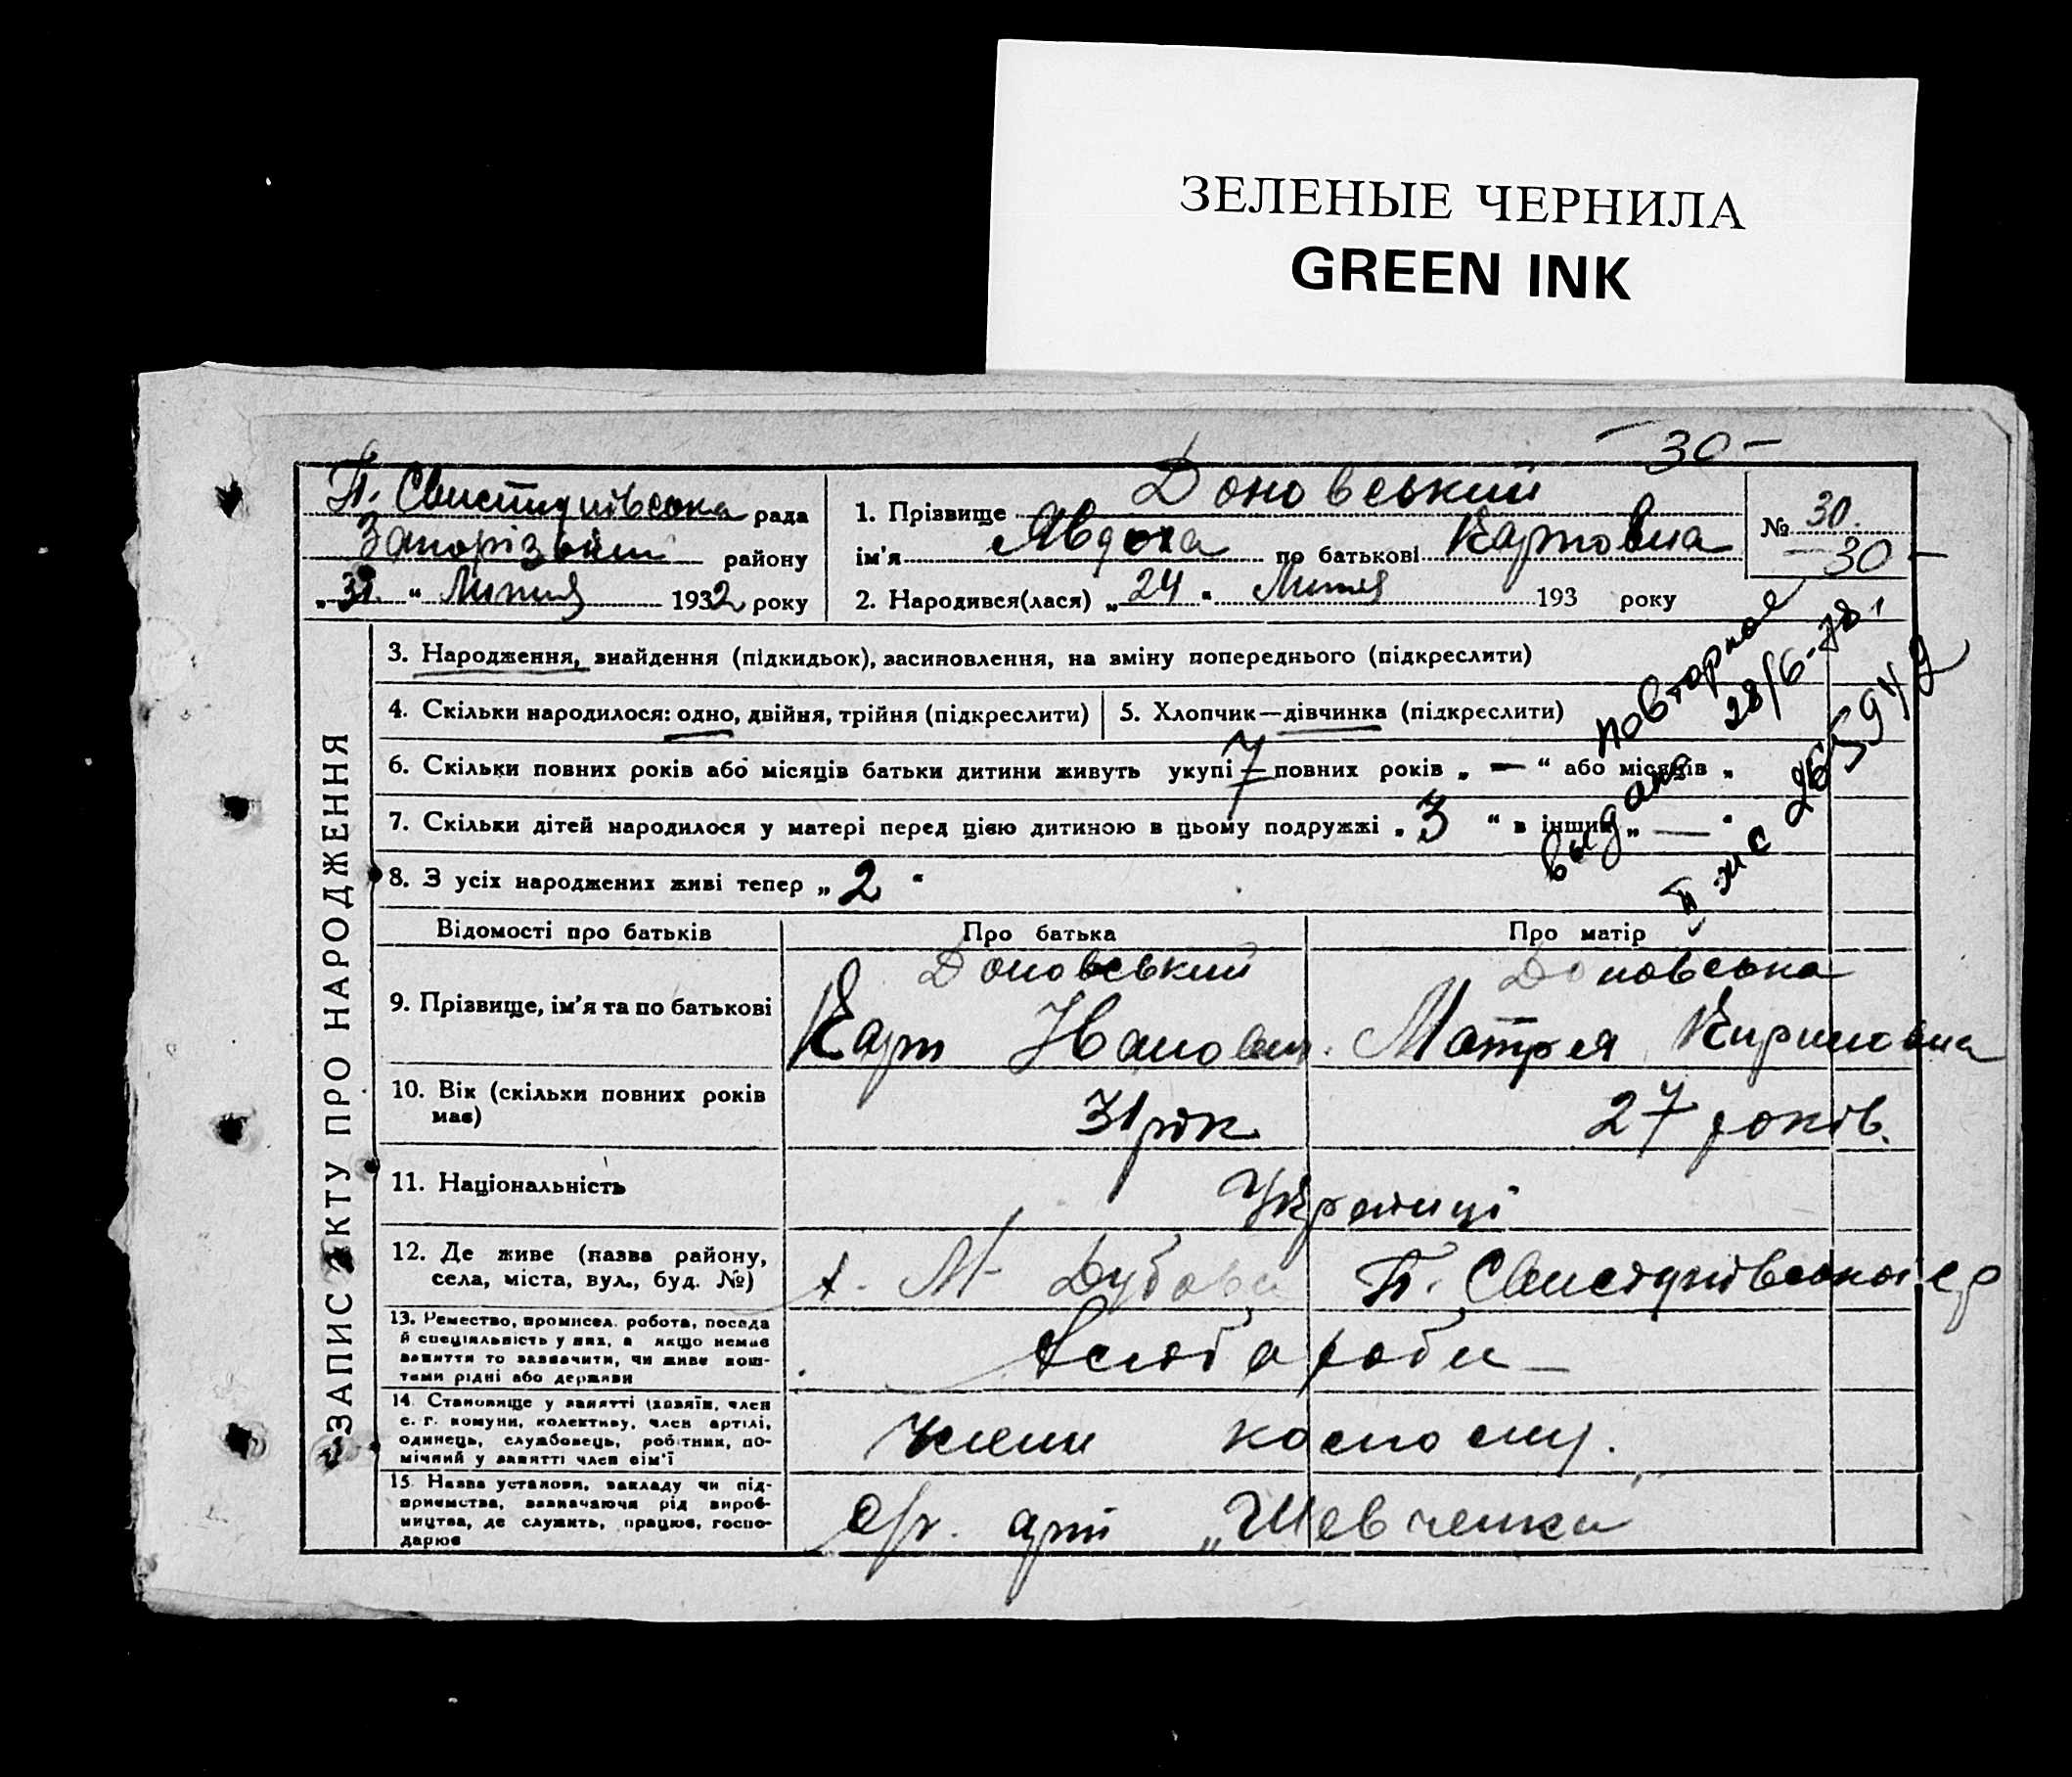 ЗЕЛЕНЫЕ ЧЕРНИЛА
GREEN INK
- 30 -
П. Свистунівська рада
Запорізьким району
„31“ Липня 1932 року
1. Прізвище Доновський
ім'я Явдоха по батькові Карповна
№ 30.
- 30 -
2. Народився(лася) „24“ Липня 193 року
ЗАПИС АКТУ ПРО НАРОДЖЕННЯ
3. Народження, знайдення (підкидьок), засиновлення, на зміну попереднього (підкреслити)
4. Скільки народилося: одно, двійня, трійня (підкреслити)
5. Хлопчик—дівчинка (підкреслити)
6. Скільки повних років або місяців батьки дитини живуть укупі 7 повних років „—“ або місяців „
7. Скільки дітей народилося у матері перед цією дитиною в цьому подружжі „3“ в інших „—“
8. З усіх народжених живі тепер „2“
выдано повторное
28/6-78.
Відомості про батьків
Про батька
Про матір
9. Прізвище, ім'я та по батькові
Доновський
Карп Іванович.
Доновська
Мотря Кириловна
10. Вік (скільки повних років має)
31 рік
27 років.
11. Національність
Українці
12. Де живе (назва району, села, міста, вул., буд. №)
х. М- Дубова П. Свистунівської с р
13. Ремество, промисел. робота, посада
й спеціяльність у них, а якщо немає
заняття то зазначити, чи живе кош-
тами рідні або держави
Хлібороби
14. Становище у занятті (хазяїн, член
с. г. комуни, колективу, член артілі,
одинець, службовець, робітник, по-
мічний у занятті член сім'ї
Члени
15. Назва установи, закладу чи під-
приємства, зазначаючи рід вироб-
ництва, де служить, працює, госпо-
дарює
с/г. арт „Шевченка